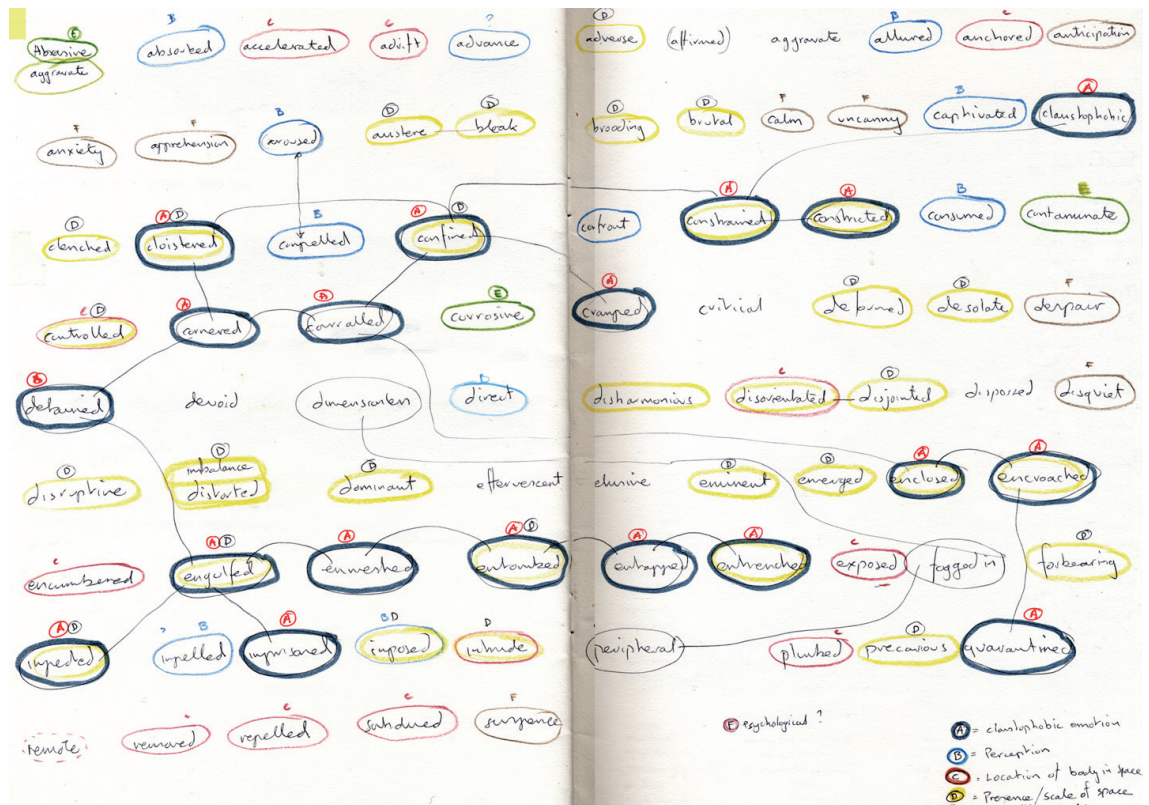 E C C ? D B C
Abrasive absorbed accelerated adrift advance adverse (affirmed) aggravate allured anchored anticipation
aggravate
F F B D D D D F F B A
anxiety apprehension aroused austere bleak brooding brutal calm uncanny captivated claustophobic
D A D B A D A A B E
clenched cloistered compelled confined cofront constrained constricted consumed contanunate
C D A A E A D D F
controlled cornered corralled corrosine cramped critical deformed desolate despair
B B C D F
detained devoid dimension direct disharmonious disorientated disjointed disposed disquiet
D D D D D A A
disruptive imbalance dominant effervescent elusive eminent emerged enclosed encroached
distorted
C A D A A D A A C D
encumbered engulfed enmeshed entombed entrapped entrenched exposed fogged in forbearing
A D ? B A B D D C D A
impeded impelled imprisoned imposed intrude peripheral plumbed precarious quarantined
C C C F
remote removed repelled subdued suspence
E psychological ?
A = claustophobic emotion
B = Perception
C = Location of body in space
D = Presence/scale of space